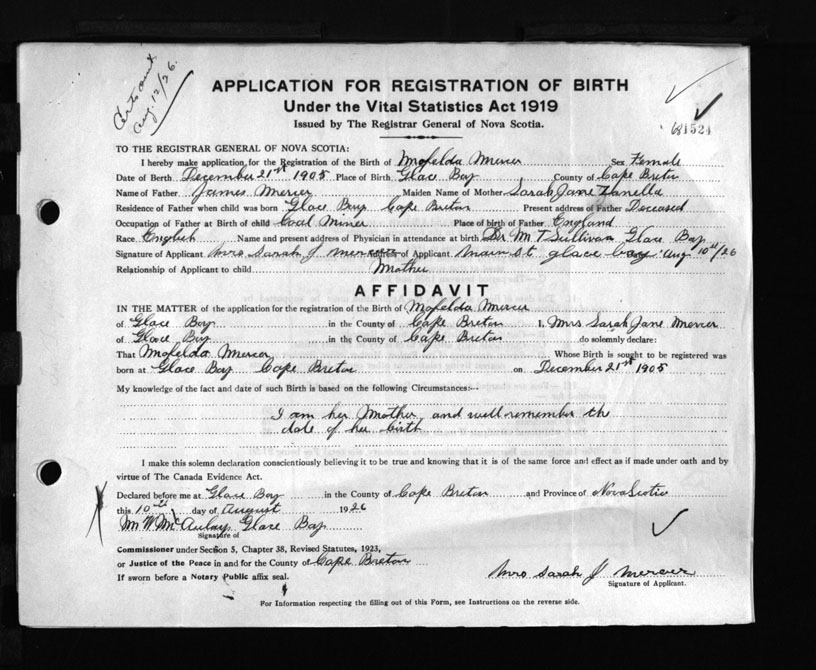 Aug. 12/26.
APPLICATION FOR REGISTRATION OF BIRTH
Under the Vital Statistics Act 1919
Issued by The Registrar General of Nova Scotia.
681524
TO THE REGISTRAR GENERAL OF NOVA SCOTIA:
I hereby make application for the Registration of the Birth of Mofelda Mercer Sex Female
Date of Birth December 21st 1905 Place of Birth Glace Bay County of Cape Breton
Name of Father James Mercer Maiden Name of Mother Sarah Jane
Residence of Father when child was born Glace Bay Cape Breton Present address of Father Deceased
Occupation of Father at Birth of child Coal Miner Place of birth of Father England
Race English Name and present address of Physician in attendance at birth Dr M T Sullivan Glace Bay
Signature of Applicant Mrs Sarah J Mercer Address of Applicant Main St glace bay Aug 10th/26
Relationship of Applicant to child Mother
AFFIDAVIT
IN THE MATTER of the application for the registration of the Birth of Mofelda Mercer
of Glace Bay in the County of Cape Breton I, Mrs Sarah Jane Mercer
of Glace Bay in the County of Cape Breton do solemnly declare:
That Mofelda Mercer Whose Birth is sought to be registered was
born at Glace Bay Cape Breton on December 21st 1905
My knowledge of the fact and date of such Birth is based on the following Circumstances:--
I am her Mother, and well remember the
date of her birth
I make this solemn declaration conscientiously believing it to be true and knowing that it is of the same force and effect as if made under oath and by
virtue of The Canada Evidence Act.
Declared before me at Glace Bay in the County of Cape Breton and Province of Nova Scotia
this 10th day of August 1926
Wm W McAulay Glace Bay
Signature of
Commissioner under Section 5, Chapter 38, Revised Statutes, 1923,
or Justice of the Peace in and for the County of Cape Breton
If sworn before a Notary Public affix seal.
Mrs Sarah J Mercer
Signature of Applicant.
For Information respecting the filling out of this Form, see Instructions on the reverse side.